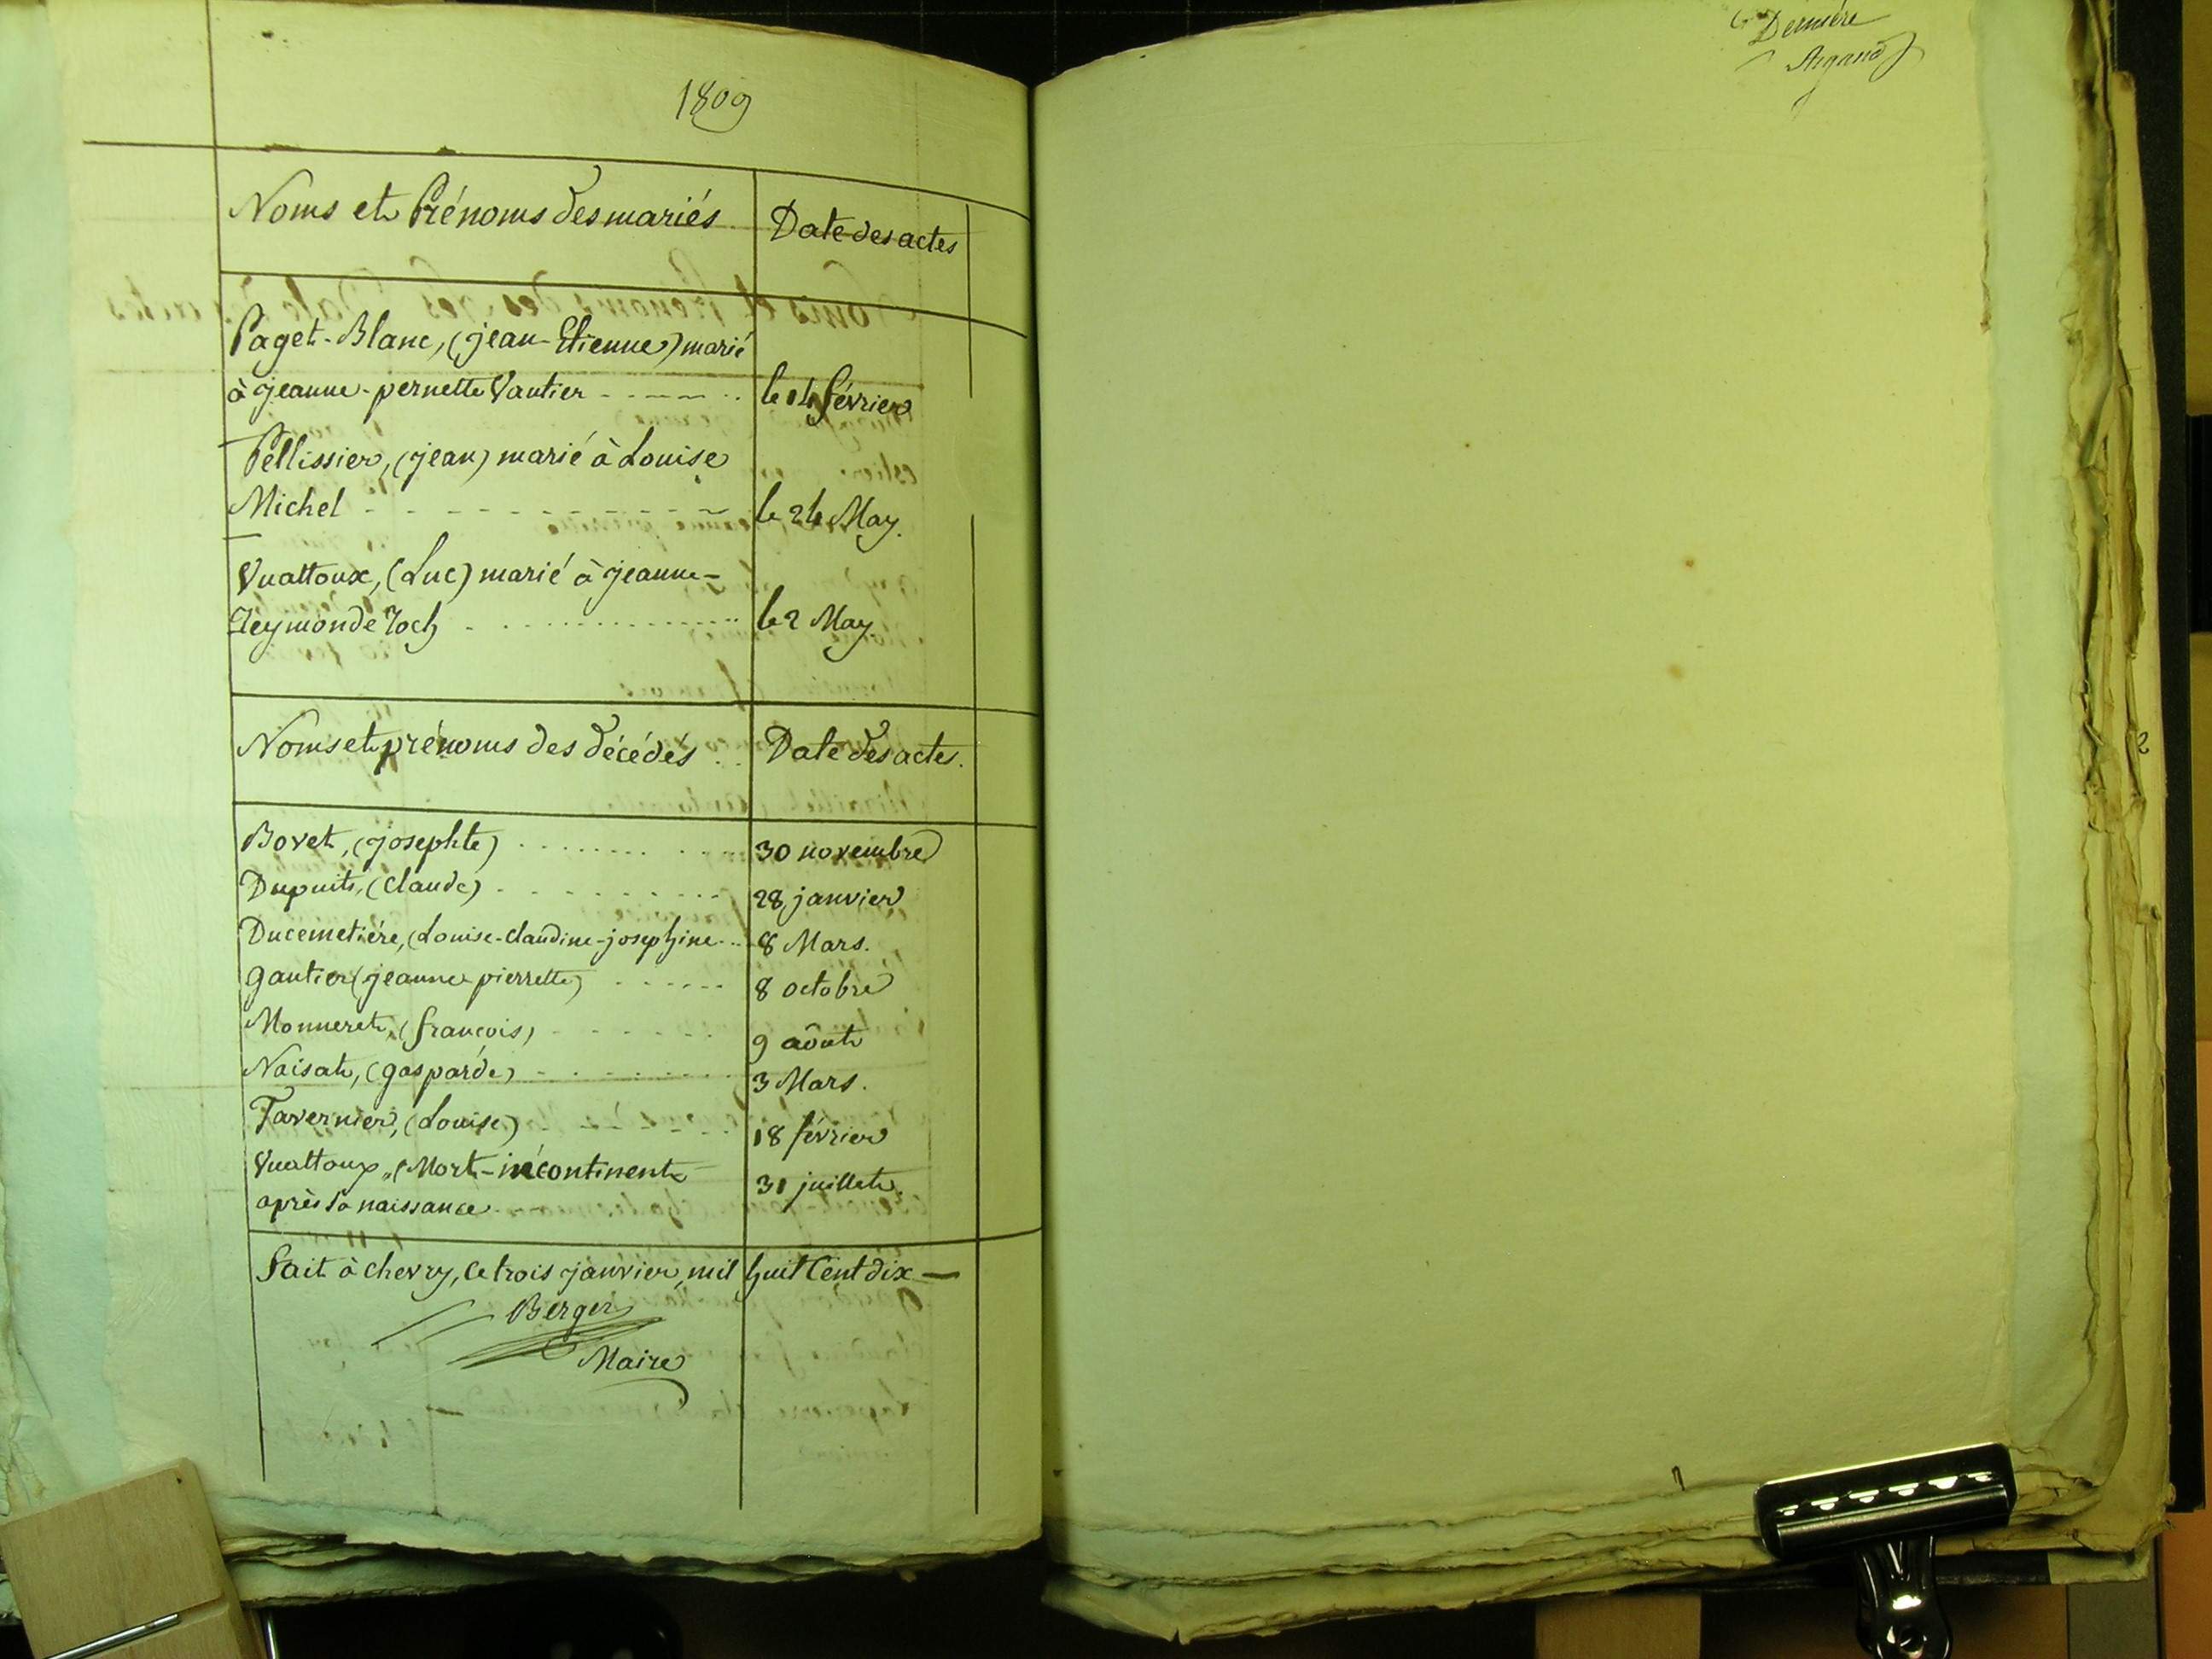 1809
Noms et Prénoms des mariés
Date des actes
Paget-Blanc, (jean-Etienne) marié
à jeanne-pernette Vautier
le 14 février
Pellissier, (jean) marié à Louise
Michel
le 24 May.
Vuattoux, (Luc) marié à jeanne-
Reymonde Roch
le 2 May
Noms et prénoms des décédés
Date des actes.
Bovet, (josephte)
30 novembre
Dupuits, (claude)
28 janvier
Ducemetiére, (Louise-claudine-josephine
8 Mars.
gautier (jeanne pierrette)
8 octobre
Monneret, (françois)
9 aôut
Naisat, (gasparde)
3 Mars.
Tavernier, (Louise)
18 février
Vuattoux, (Mort-incontinent
31 juillet.
après sa naissance
fait à chevry, ce trois janvier, mil huit Cent dix —
Berger
Maire
Derniére
Argand
2